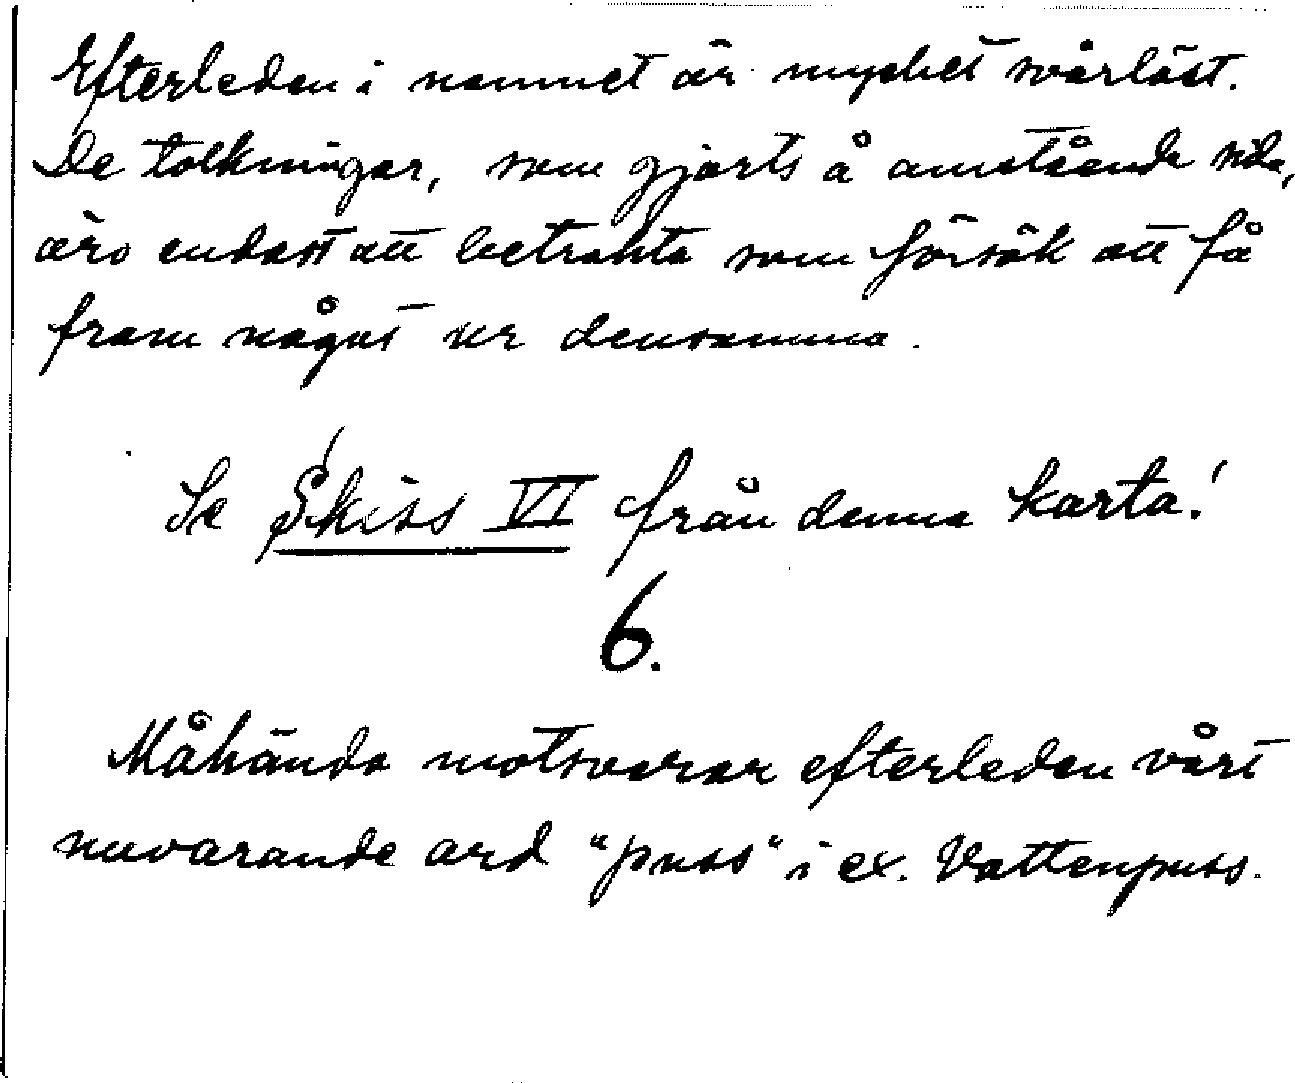 Efterleden i namnet är mycket svårläst.
De tolkningar, som gjorts å amstående sida,
äro endast att betrakta som försök att få
fram något ur densamma.
Se Skiss VI från denna karta!
6.
Måhända motsvarar efterleden vårt
nuvarande ord "puss" i ex. Vattenpuss.